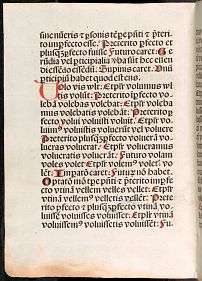 sine nūeris et p̄sonis tēpe p̄nti et p̄teri
to imp̄fecto esse. Preterito p̄fecto et
plusq̄ȝp̄fecto fuisse Futuro caret. Ge
rūdia vel p̄ticipialia vba sūt hec essen
di essēdo essēdū. Supinis caret. Duo
p̄ticipia habet quod est ens.
Volo vis vlt. Etpłr volumus vl
tis volūt. Preterito imp̄fecto vo
lebā volebas volebat. Etpłr volebā
mus volebatis volebāt. Preterito p
fecto volui voluisti voluit. Etpłr vo
luimꝰ voluistis voluerūt vel voluere
Preterito plusq̄ȝp̄fecto voluerā vo
lueras voluerat. Etpłr volueramus
volueratis voluerāt. Futuro volam
voles volet Etpłr volemꝰ voletꝭ vo
lēt. Imparatō caret. Futur nō habet.
Optatō mō tpe p̄nti et p̄terito imp̄fe
cto vtinā vellem velles vellet. Etpłr
vtinā vellemꝰ velletis vellēt. Prete
rito p̄fecto et plusq̄ȝp̄fecto vtinā vo
luissē voluisses voluisset. Etpłr vtinā
voluissemꝰ voluissetis voluissēt. Fu